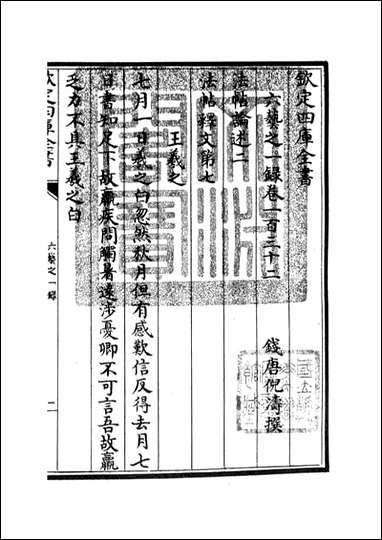 欽定四庫全書
六藝之一録卷一百三十二
錢唐倪濤撰
法帖論述二
法帖釋文第七
王羲之
七月一日羲之白忽然秋月但有感歎信反得去月七
日書知足下故羸疾問觸暑遠涉憂卿不可言吾故羸
乏力不具王羲之白
欽定四庫全書
六藝之一録